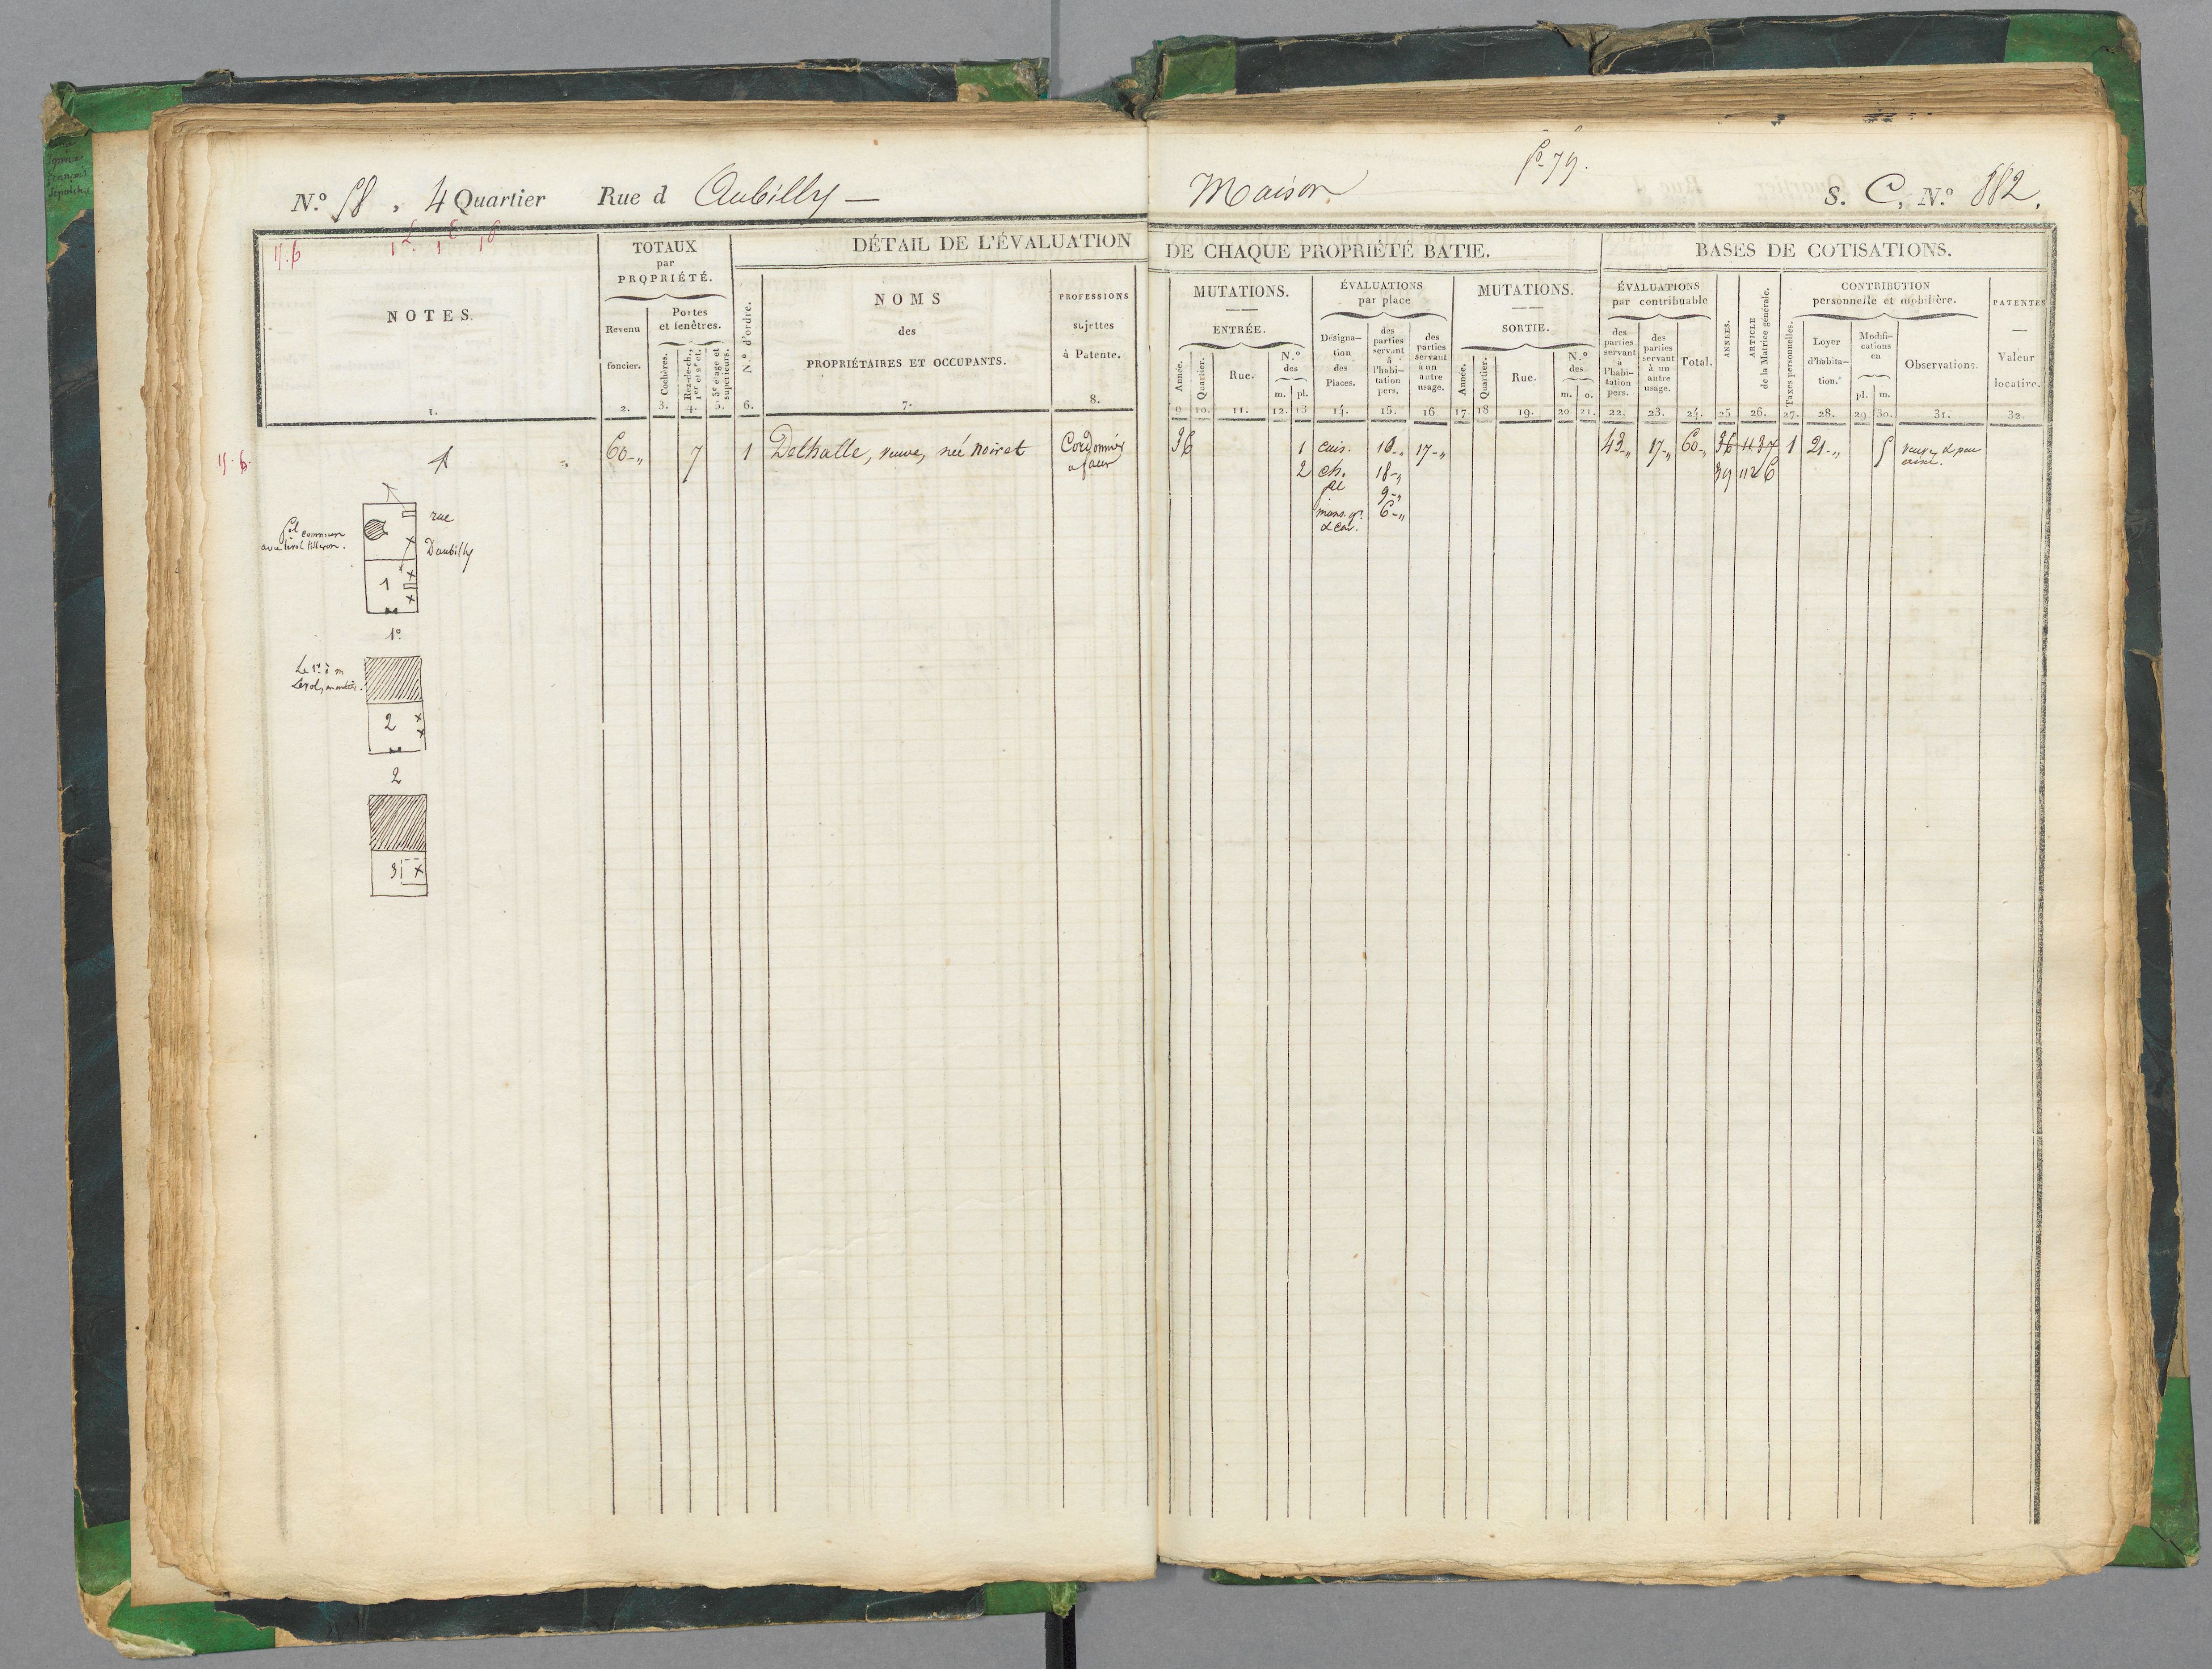 fo 79.
N.o 58, 4 Quartier Rue d Aubilly —
Maison
S. C, N.o 882.
15.6
DÉTAIL DE L'ÉVALUATION
DE CHAQUE PROPRIÉTÉ BATIE.
BASES DE COTISATIONS.
NOTES.
1.
TOTAUX
par
PROPRIÉTÉ.
Revenu
foncier.
2.
Portes
et fenêtres.
Cochères.
3.
Rez-de-ch.,
1er et 2e ét.
4.
3e étage et
supérieurs.
5.
N.o d'ordre.
6.
NOMS
des
PROPRIÉTAIRES ET OCCUPANTS.
7.
PROFESSIONS
sujettes
à Patente.
8.
MUTATIONS.
ENTRÉE.
Année.
9
Quartier.
10.
Rue.
11.
N.o
des
m. pl.
12. 13
ÉVALUATIONS
par place
Désigna-
tion
des
Places.
14.
des
parties
servant
à
l'habi-
tation
pers.
15.
des
parties
servant
à un
autre
usage.
16
MUTATIONS.
SORTIE.
Année.
17.
Quartier.
18
Rue.
19.
N.o
des
m. o.
20 21.
ÉVALUATIONS
par contribuable
des
parties
servant
à
l'habi-
tation
pers.
22.
des
parties
servant
à un
autre
usage.
23.
Total.
24.
ANNÉES.
25
ARTICLE
de la Matrice générale.
26.
CONTRIBUTION
personnelle et mobilière.
Taxes personnelles.
27.
Loyer
d'habita-
tion.
28.
Modifi-
cations
en
pl. m
29. 30.
Observations.
31.
PATENTES
Valeur
locative.
32.
15.6.
1
60-„ 7 1 Delhalle, veuve, née Noiret Cordonnier
a façon
36 1 cuis. 10-„ 17-„ 43-„ 17-„ 60-„ 36 1137 1 21-„ 5
2 ch. 18-„ 39 1126
9-„
mans. gr. 6-„
& cav.
rue
Daubilly
commun
1
1o
2
2
3